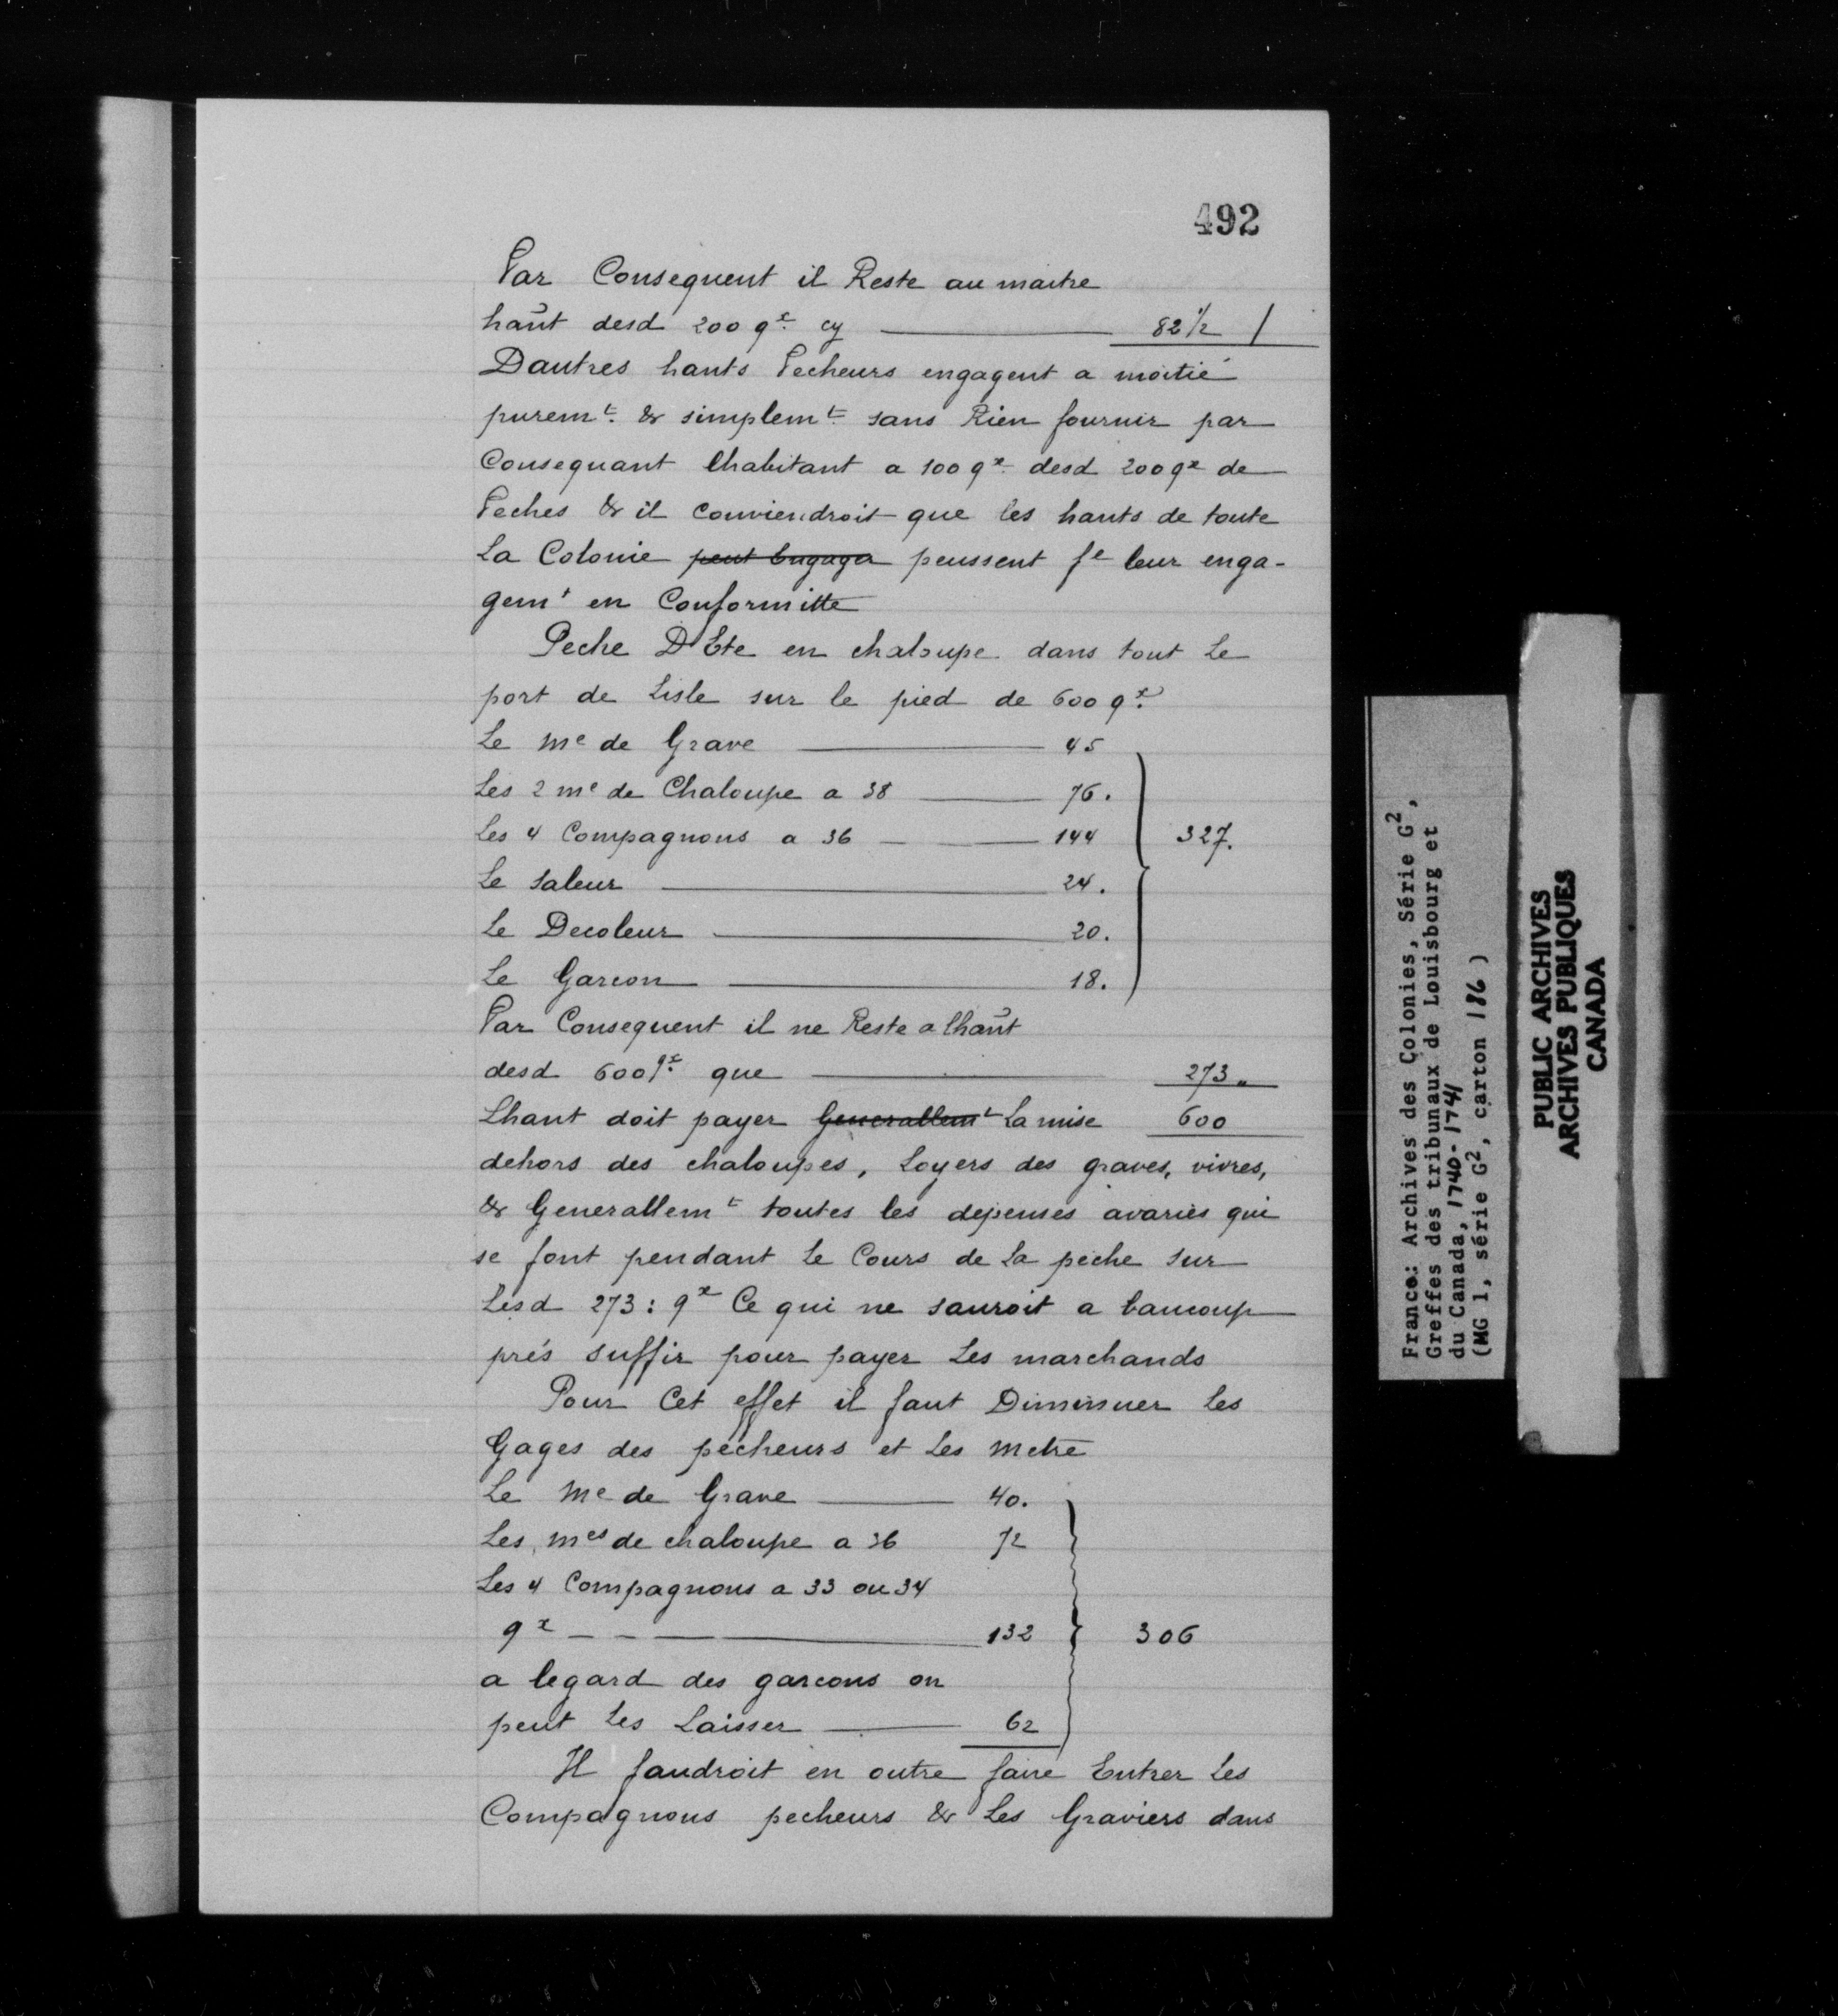 492
Par Consequent il Reste au maitre
hañt desd 200 qx cy ——— 82 1/2 /
Dautres hants Pecheurs engagent a moitié
puremt & simplemt sans Rien fournir par
Consequant lhabitant a 100 qx desd 200 qx de
Peches & il conviendroit que les hants de toute
La Colonie peut Engager peussent fe leur enga-
gemt en Conformitte
Peche D'Ete en chaloupe dans tout Le
port de Lisle sur le pied de 600 qx
Le me de Grave ——— 45
Les 2 me de Chaloupe a 38 ——— 76.
Les 4 Compagnons a 36 ——— 144 327.
Le saleur ——— 24.
Le Decoleur ——— 20.
Le Garcon ——— 18.
Par Consequent il ne Reste a lhañt
desd 600 qx que ——— 273 "
Lhant doit payer Generallemt La mise 600
dehors des chaloupes, Loyers des graves, vivres,
& Generallemt toutes les depenses avaries qui
se font pendant Le Cours de La peche sur
Lesd 273 : qx Ce qui ne sauroit a baucoup
prés suffir pour payer Les marchands
Pour Cet effet il faut Diminuer Les
Gages des pécheurs et Les metre
Le me de Grave ——— 40.
Les mes de chaloupe a 36 72
Les 4 Compagnons a 33 ou 34
qx ——— 132 306
a legard des garcons on
peut Les Laisser ——— 62
Il faudroit en outre faire Entrer Les
Compagnons pecheurs & Les Graviers dans
France: Archives des Colonies, Série G2,
Greffes des tribunaux de Louisbourg et
du Canada, 1740-1741
(MG 1, série G2, carton 186)
PUBLIC ARCHIVES
ARCHIVES PUBLIQUES
CANADA